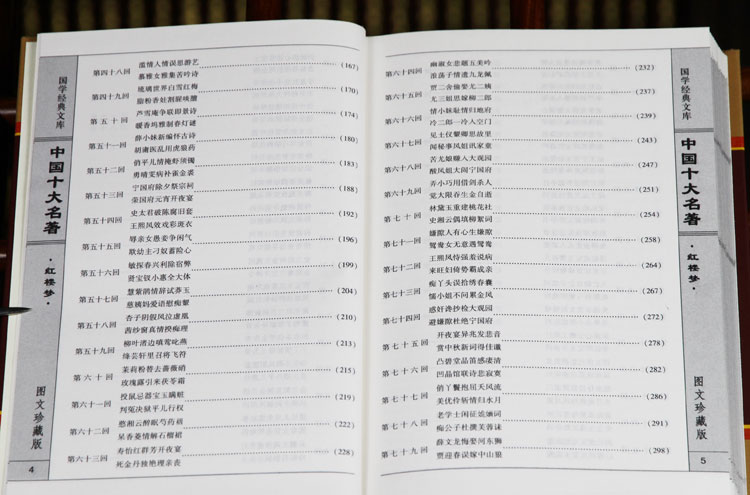 国学经典文库
中国十大名著
·红楼梦·
图文珍藏版
4
第四十八回 滥情人情误思游艺
慕雅女雅集苦吟诗 (167)
第四十九回 琉璃世界白雪红梅
脂粉香娃割腥啖膻 (170)
第五十回 芦雪庵争联即景诗
暖香坞雅制春灯谜 (174)
第五十一回 薛小妹新编怀古诗
胡庸医乱用虎狼药 (180)
第五十二回 俏平儿情掩虾须镯
勇晴雯病补雀金裘 (183)
第五十三回 宁国府除夕祭宗祠
荣国府元宵开夜宴 (188)
第五十四回 史太君破陈腐旧套
王熙凤效戏彩斑衣 (192)
第五十五回 辱亲女愚妾争闲气
欺幼主刁奴蓄险心 (196)
第五十六回 敏探春兴利除宿弊
贤宝钗小惠全大体 (199)
第五十七回 慧紫鹃情辞试莽玉
慈姨妈爱语慰痴颦 (204)
第五十八回 杏子阴假凤泣虚凰
茜纱窗真情揆痴理 (210)
第五十九回 柳叶渚边嗔莺叱燕
绛芸轩里召将飞符 (213)
第六十回 茉莉粉替去蔷薇硝
玫瑰露引来茯苓霜 (215)
第六十一回 投鼠忌器宝玉瞒赃
判冤决狱平儿行权 (219)
第六十二回 憨湘云醉眠芍药裀
呆香菱情解石榴裙 (222)
第六十三回 寿怡红群芳开夜宴
死金丹独艳理亲丧 (228)
第六十四回 幽淑女悲题五美吟
浪荡子情遗九龙佩 (232)
第六十五回 贾二舍偷娶尤二姨
尤三姐思嫁柳二郎 (237)
第六十六回 情小妹耻情归地府
冷二郎一冷入空门 (239)
第六十七回 见土仪颦卿思故里
闻秘事凤姐讯家童 (243)
第六十八回 苦尤娘赚入大观园
酸凤姐大闹宁国府 (247)
第六十九回 弄小巧用借剑杀人
觉大限吞生金自逝 (251)
第七十回 林黛玉重建桃花社
史湘云偶填柳絮词 (254)
第七十一回 嫌隙人有心生嫌隙
鸳鸯女无意遇鸳鸯 (258)
第七十二回 王熙凤恃强羞说病
来旺妇倚势霸成亲 (264)
第七十三回 痴丫头误拾绣春囊
懦小姐不问累金凤 (267)
第七十四回 惑奸谗抄检大观园
避嫌隙杜绝宁国府 (272)
第七十五回 开夜宴异兆发悲音
赏中秋新词得佳谶 (278)
第七十六回 凸碧堂品笛感凄清
凹晶馆联诗悲寂寞 (282)
第七十七回 俏丫鬟抱屈夭风流
美优伶斩情归水月 (286)
第七十八回 老学士闲征姽婳词
痴公子杜撰芙蓉诔 (291)
第七十九回 薛文龙悔娶河东狮
贾迎春误嫁中山狼 (298)
国学经典文库
中国十大名著
·红楼梦·
图文珍藏版
5